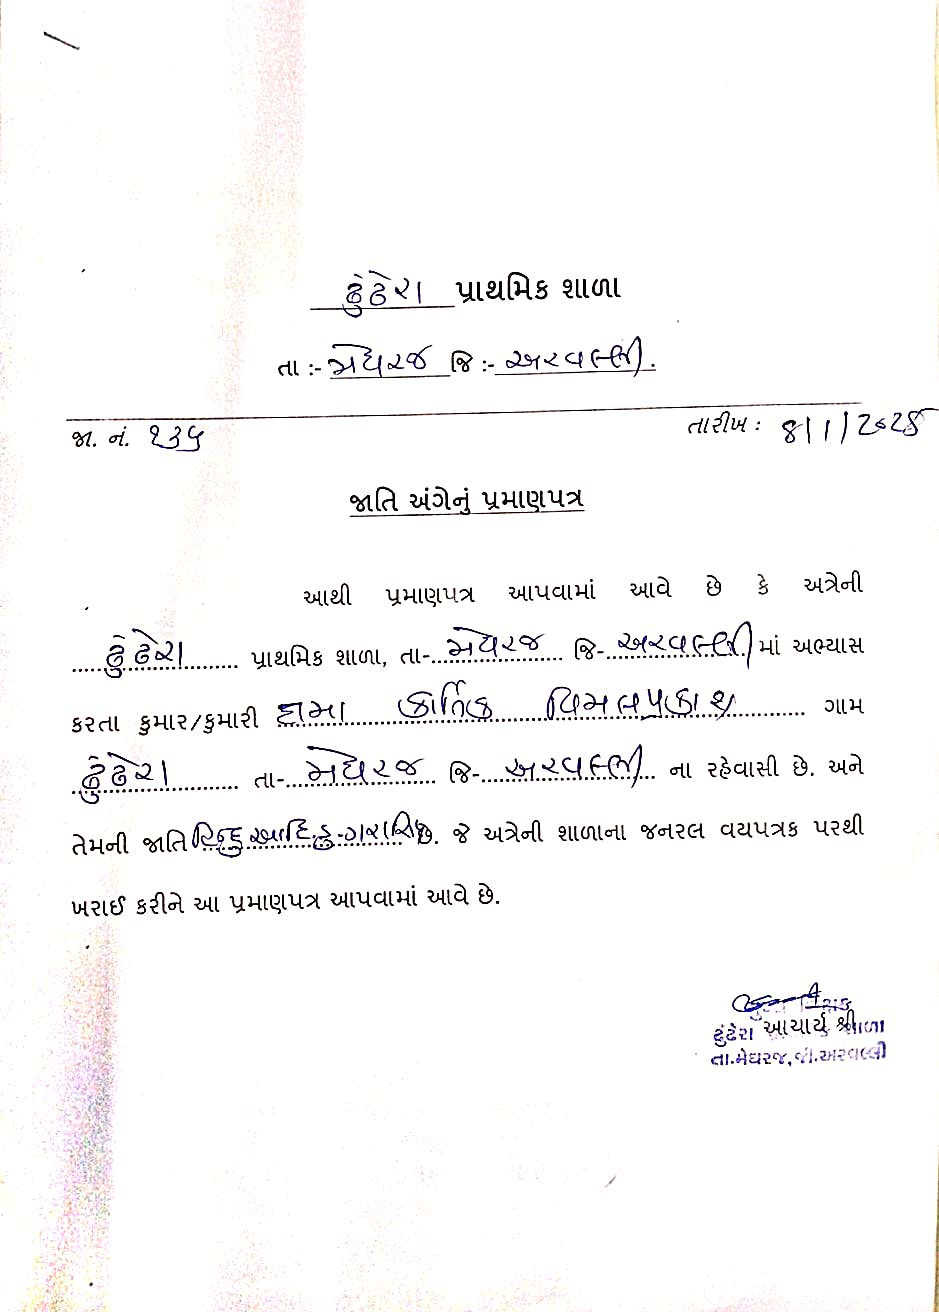 ઢુંઢેરા પ્રાથમિક શાળા
તા :- મેઘરજ જિ :- અરવલ્લી.
જા. નં. ૨૩૫ તારીખ : ૪/૧/૨૦૨૪
જાતિ અંગેનું પ્રમાણપત્ર
આથી પ્રમાણપત્ર આપવામાં આવે છે કે અત્રેની
ઢુંઢેરા પ્રાથમિક શાળા, તા-મેઘરજ જિ-અરવલ્લી માં અભ્યાસ
કરતા કુમાર/કુમારી ડામા કાર્તિક વિમલપ્રકાશ ગામ
ઢુંઢેરા તા-મેઘરજ જિ-અરવલ્લી ના રહેવાસી છે. અને
તેમની જાતિ હિન્દુ ગરાસિ છે. જે અત્રેની શાળાના જનરલ વયપત્રક પરથી
ખરાઈ કરીને આ પ્રમાણપત્ર આપવામાં આવે છે.
ઢુંઢેરા આચાર્ય શ્રી શાળા
તા.મેઘરજ,જી.અરવલ્લી